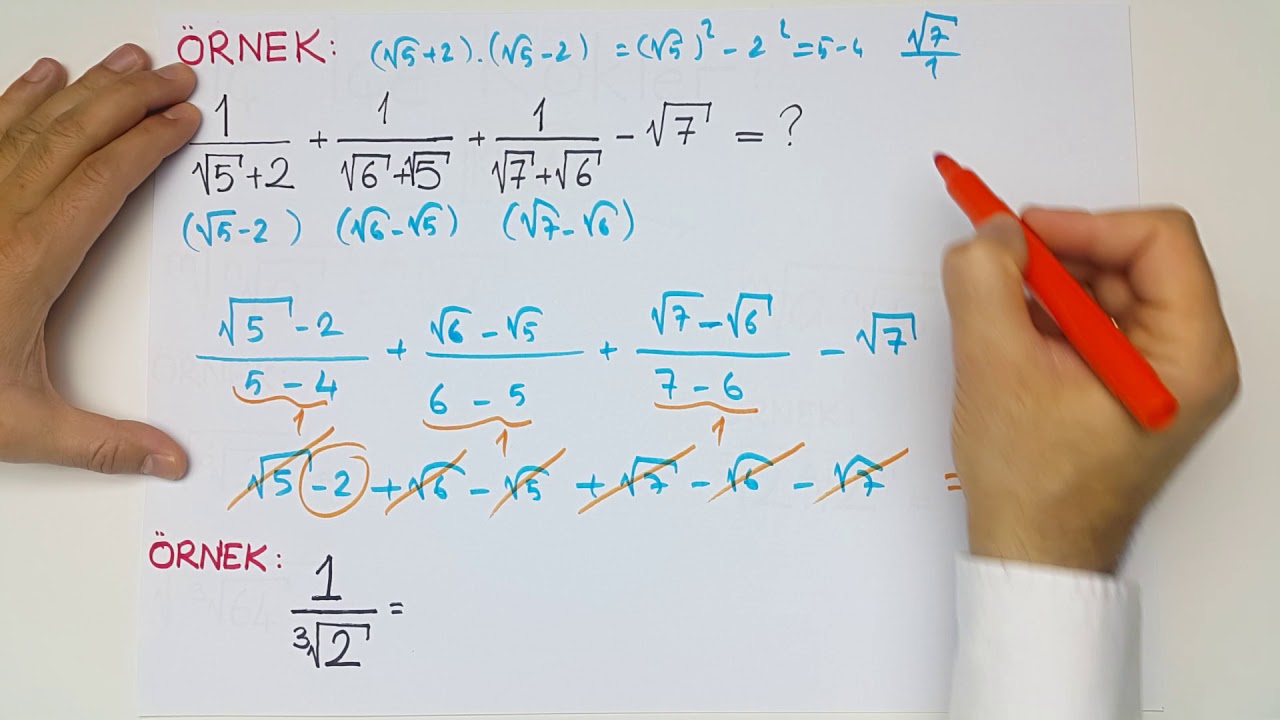 ÖRNEK: (√5+2).(√5-2) = (√5)² - 2² = 5-4 √7/1
1/(√5+2) + 1/(√6+√5) + 1/(√7+√6) - √7 = ?
(√5-2) (√6-√5) (√7-√6)
(√5-2)/(5-4) + (√6-√5)/(6-5) + (√7-√6)/(7-6) - √7
1 1 1
√5 -2 + √6 - √5 + √7 - √6 - √7 =
ÖRNEK: 1/³√2 =